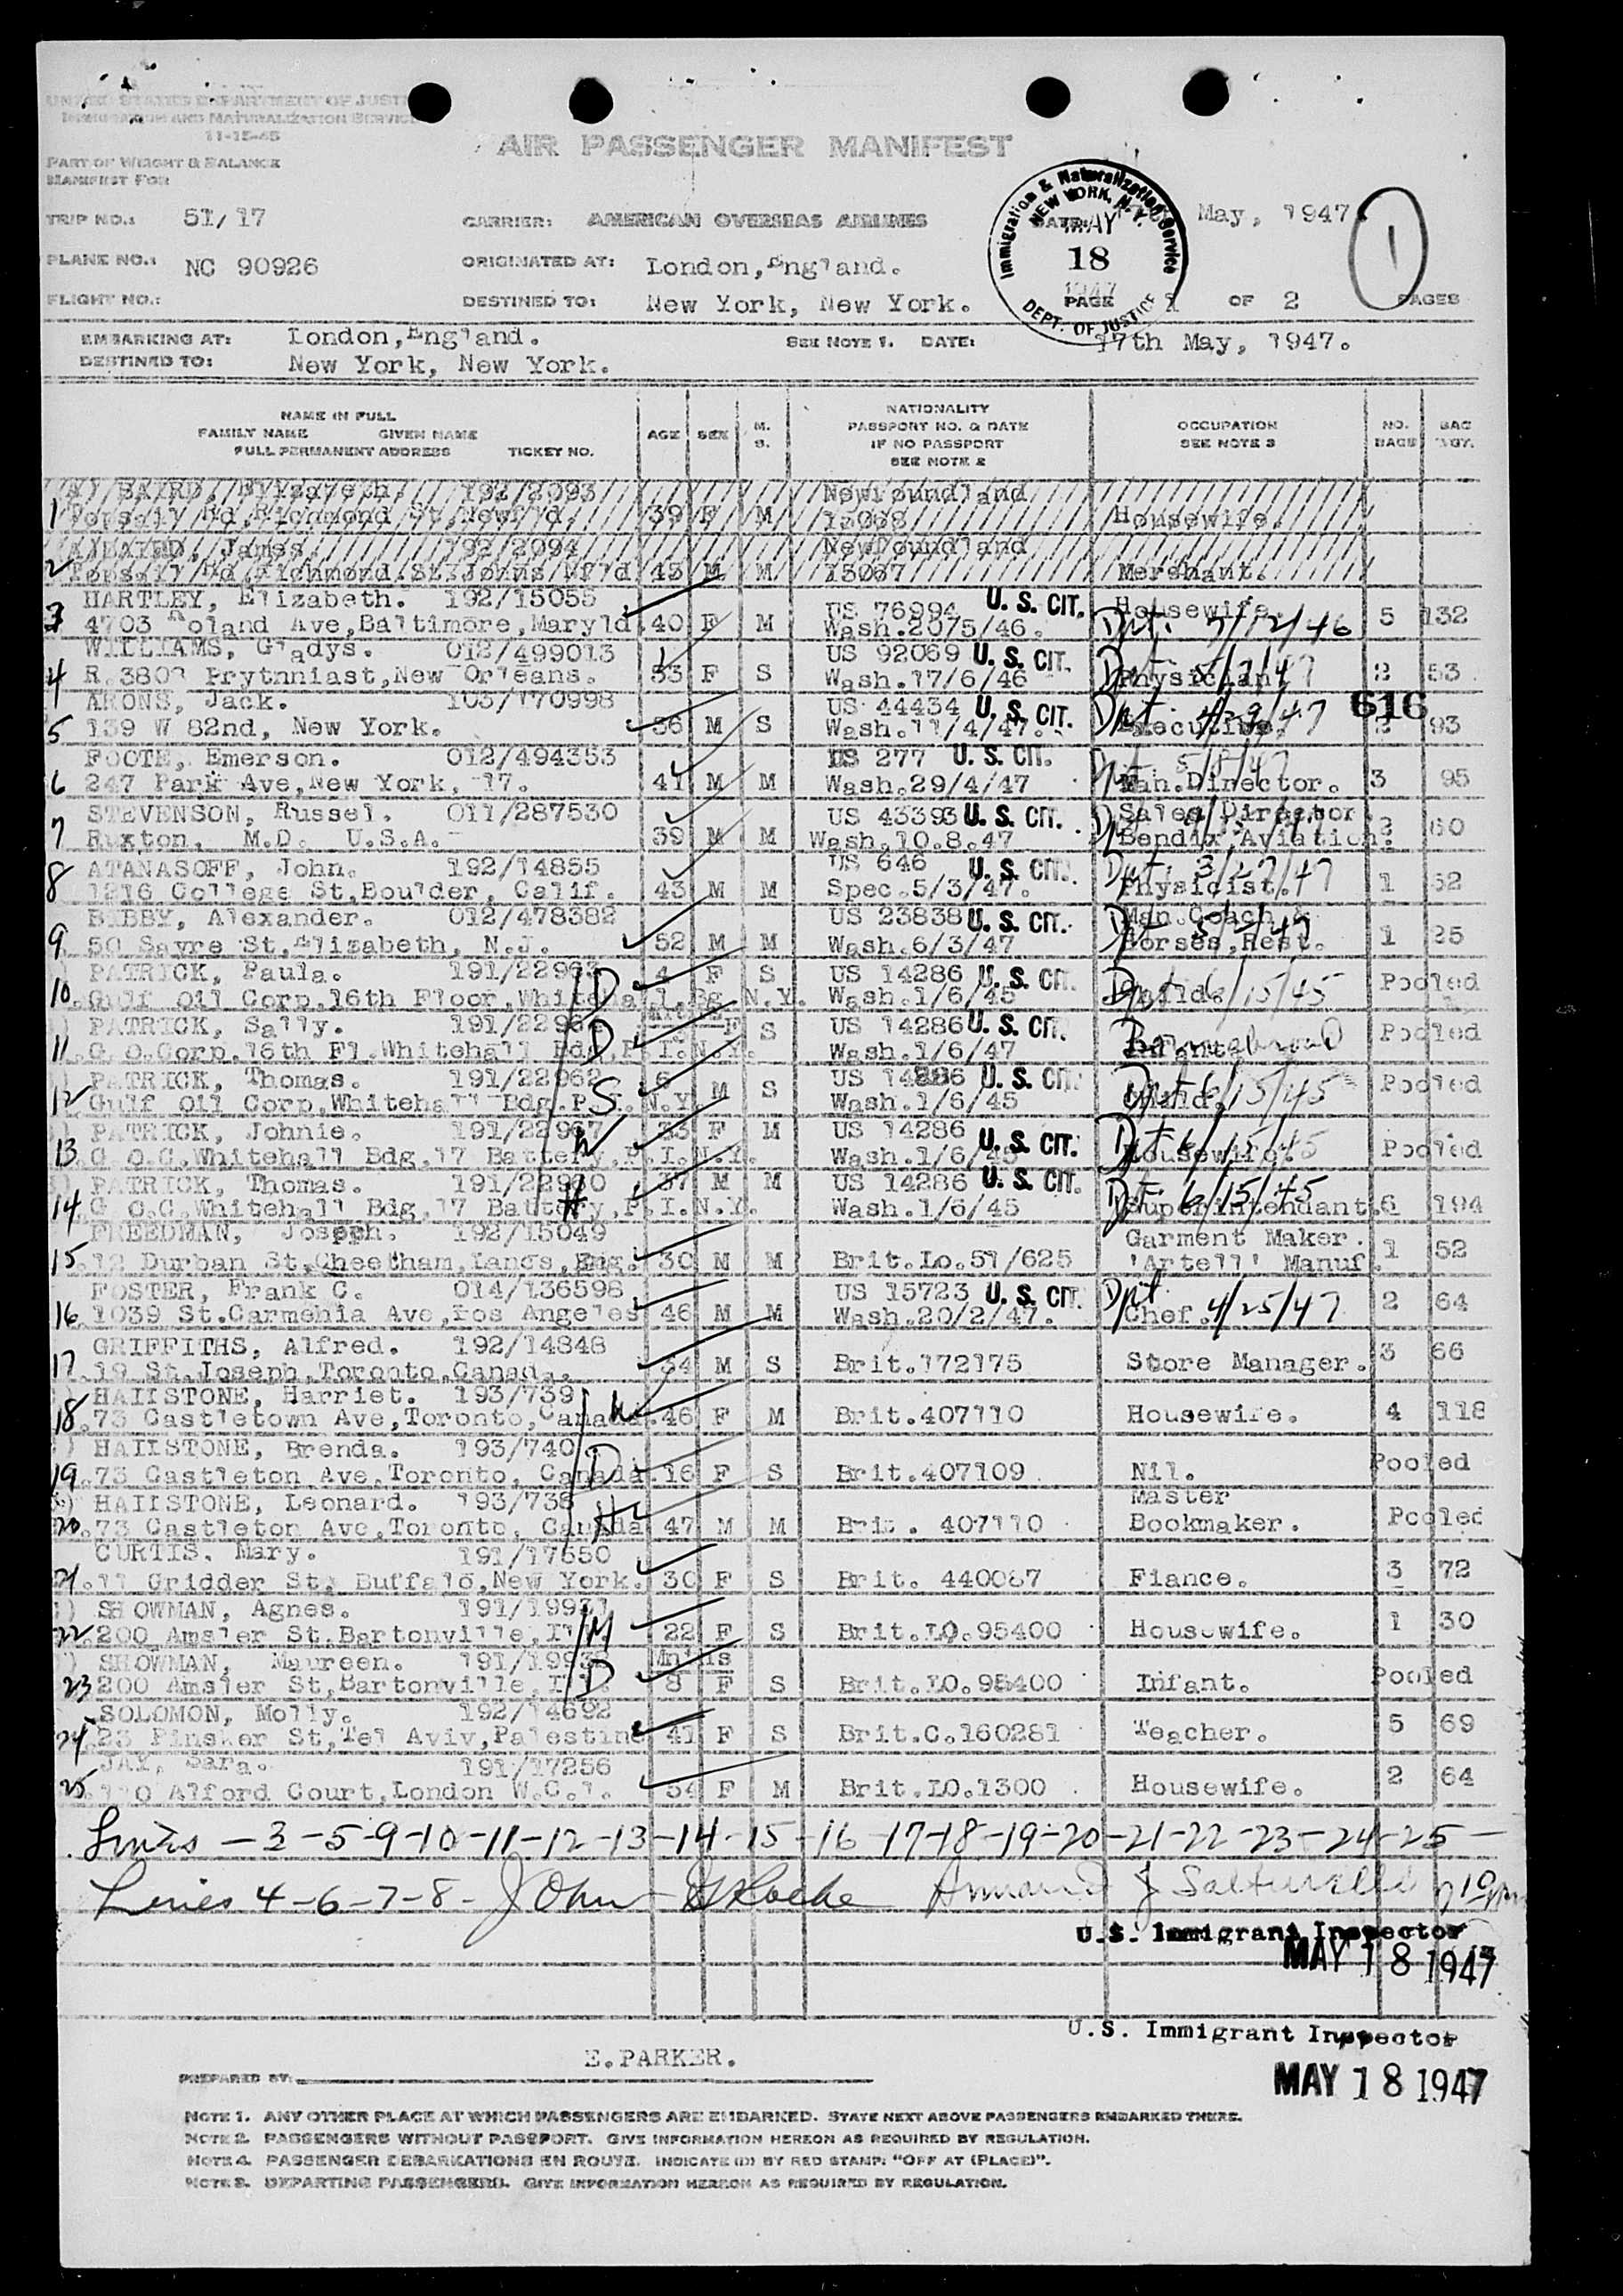 UNITED STATES DEPARTMENT OF JUSTI
IMMIGRATION AND NATURALIZATION SERVICE
11-15-45
AIR PASSENGER MANIFEST
PART OF WEIGHT & BALANCE
MANIFEST FOR
TRIP NO.: 51/17 CARRIER: AMERICAN OVERSEAS AIRLINES DATE: May, 1947.
Immigration & Naturalization Service
NEW YORK, N.Y.
MAY
18
1947
DEPT. OF JUSTICE
1
PLANE NO.: NC 90926 ORIGINATED AT: London,England.
FLIGHT NO.: DESTINED TO: New York, New York. PAGE 1 OF 2 PAGES
EMBARKING AT: London,England. SEE NOTE 1. DATE: 17th May, 1947.
DESTINED TO: New York, New York.
NAME IN FULL
FAMILY NAME GIVEN NAME
FULL PERMANENT ADDRESS TICKET NO.
AGE SEX M. S.
NATIONALITY
PASSPORT NO. & DATE
IF NO PASSPORT
SEE NOTE 2
OCCUPATION
SEE NOTE 3
NO. BAGS
BAG WGT.
BAIRD, Elizabeth. 192/2093 Newfoundland
1 Richmond St,Newf'd. 39 F M 13068 Housewife.
BAIRD, James. 192/2094 Newfoundland
2 Rd,Richmond.St.Johns,Nf'd 43 M M 13067 Merchant.
HARTLEY, Elizabeth. 192/15055 US 76994 U. S. CIT. Housewife.
3 4703 Roland Ave,Baltimore,Maryld. 40 F M Wash.20/5/46. Dpt. 7/12/46 5 132
WILLIAMS, Gladys. 012/499013 US 92069 U. S. CIT. Dpt. 5/7/47
4 R.3807 Prytnniast,New Orleans. 53 F S Wash.17/6/46 Physician 2 53
ARONS, Jack. 103/170998 US 44434 U. S. CIT. Dpt. 4/29/47 616
5 139 W 82nd, New York. 36 M S Wash.11/4/47. Executive. 2 93
FOOTE, Emerson. 012/494353 US 277 U. S. CIT. Dpt 5/8/47
6 247 Park Ave,New York, 17. 41 M M Wash.29/4/47 Man.Director. 3 95
STEVENSON, Russel. 011/287530 US 43393 U. S. CIT. Sales Director
7 Ruxton, M.D. U.S.A. 39 M M Wash.10.8.47 Bendix Aviation. 2 60
ATANASOFF, John. 192/14855 US 646 U. S. CIT. Dpt. 3/27/47
8 1216 College St,Boulder, Calif. 43 M M Spec.5/3/47. Physicist. 1 52
BIBBY, Alexander. 012/478382 US 23838 U. S. CIT. Man.Coach &
9 50 Sayre St,Elizabeth, N.J. 52 M M Wash.6/3/47 Horses,Rest. 1 25
PATRICK, Paula. 191/22963 D 4 F S US 14286 U. S. CIT. Dpt 6/15/45 Pooled
10. Gulf Oil Corp,16th Floor,Whitehall,Bg N.Y. Wash.1/6/45 Child.
PATRICK, Sally. D F S US 14286 U. S. CIT. Pooled
11. G.O.Corp.16th Fl.Whitehall Bdg,P.I.N.Y. Wash.1/6/47 Infant
PATRICK, Thomas. 191/22962 6 M S US 14286 U. S. CIT. Dpt 6/15/45 Pooled
12 Gulf Oil Corp,Whitehall Bdg.P.I.N.Y S Wash.1/6/45 Child.
PATRICK, Johnie. 191/22967 W 33 F M US 14286 U. S. CIT. Dpt 6/15/45
13. G.O.C.Whitehall Bdg,17 Battery,P.I.N.Y. Wash.1/6/45 Housewife. Pooled
PATRICK, Thomas. H 37 M M US 14286 U. S. CIT. Dpt. 6/15/45
14. G O.C.Whitehall Bdg,17 Battery,P.I.N.Y. Wash.1/6/45 Superintendant. 6 194
FREEDMAN, Joseph. 192/15049 Garment Maker.
15. 12 Durban St,Cheetham,Lancs,Eng. 30 M M Brit.Lo.51/625 'Artell' Manuf. 1 52
FOSTER, Frank C. 014/136598 US 15723 U. S. CIT. Dpt
16. 1039 St.Carmehla Ave,Los Angeles 46 M M Wash.20/2/47. Chef. 4/25/47 2 64
GRIFFITHS, Alfred. 192/14848
17. 19 St.Joseph,Toronto,Canada. 34 M S Brit.172175 Store Manager. 3 66
HAILSTONE, Harriet. 193/739 W
18. 73 Castletown Ave,Toronto,Canada. 46 F M Brit.407110 Housewife. 4 118
HAILSTONE, Brenda. 193/740 D
19. 73 Castleton Ave,Toronto, Canada. 16 F S Brit.407109 Nil. Pooled
HAILSTONE, Leonard. 193/738 H Master
20. 73 Castleton Ave,Toronto, Canada 47 M M Brit. 407110 Bookmaker. Pooled
CURTIS. Mary. 191/17650
21. 11 Gridder St, Buffalo,New York. 30 F S Brit. 440087 Fiance. 3 72
SHOWMAN, Agnes. 191/19931 M
22. 200 Amsler St.Bartonville,Ill. 22 F S Brit.LO.95400 Housewife. 1 30
SHOWMAN, Maureen. D Mnths
23 200 Amsler St,Bartonville,Ill. 8 F S Brit.LO.95400 Infant. Pooled
SOLOMON, Molly. 192/14692
24. 23 Pinsker St,Tel Aviv,Palestine 41 F S Brit.C.160281 Teacher. 5 69
JAY, Sara. 191/17256
25. 110 Alford Court,London W.C.1. 54 F M Brit.LO.1300 Housewife. 2 64
Lines - 3 - 5-9-10-11-12-13-14-15-16 17-18-19-20-21-22-23-24-25-
Lines 4-6-7-8- John Roche Armand J
U.S. Immigrant Inspector
MAY 18 1947
U.S. Immigrant Inspector
E.PARKER.
PREPARED BY:
MAY 18 1947
NOTE 1. ANY OTHER PLACE AT WHICH PASSENGERS ARE EMBARKED. STATE NEXT ABOVE PASSENGERS EMBARKED THERE.
NOTE 2. PASSENGERS WITHOUT PASSPORT. GIVE INFORMATION HEREON AS REQUIRED BY REGULATION.
NOTE 4. PASSENGER DEBARKATIONS EN ROUTE. INDICATE (D) BY RED STAMP: "OFF AT (PLACE)".
NOTE 3. DEPARTING PASSENGERS. GIVE INFORMATION HEREON AS REQUIRED BY REGULATION.